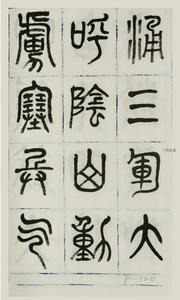 涌三軍大
呼陰山動
虜塞兵气